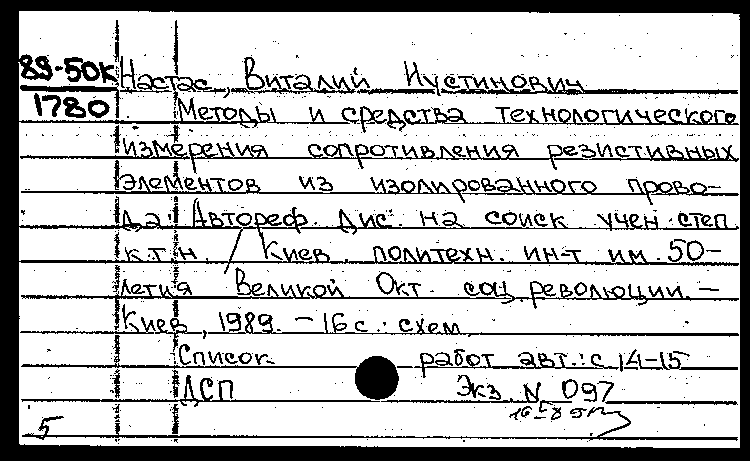 89-50К Настас, Виталий Иустинович
1780 Методы и средства технологического
измерения сопротивления резистивных
элементов из изолированного прово-
да: Автореф. дис. на соиск. учен. степ.
к.т.н. / Киев. политехн. ин-т им. 50-
летия Великой Окт. соц. революции. –
Киев, 1989. – 16 с.: схем.
Список работ авт.: с. 14-15
ДСП Экз. N 097
5